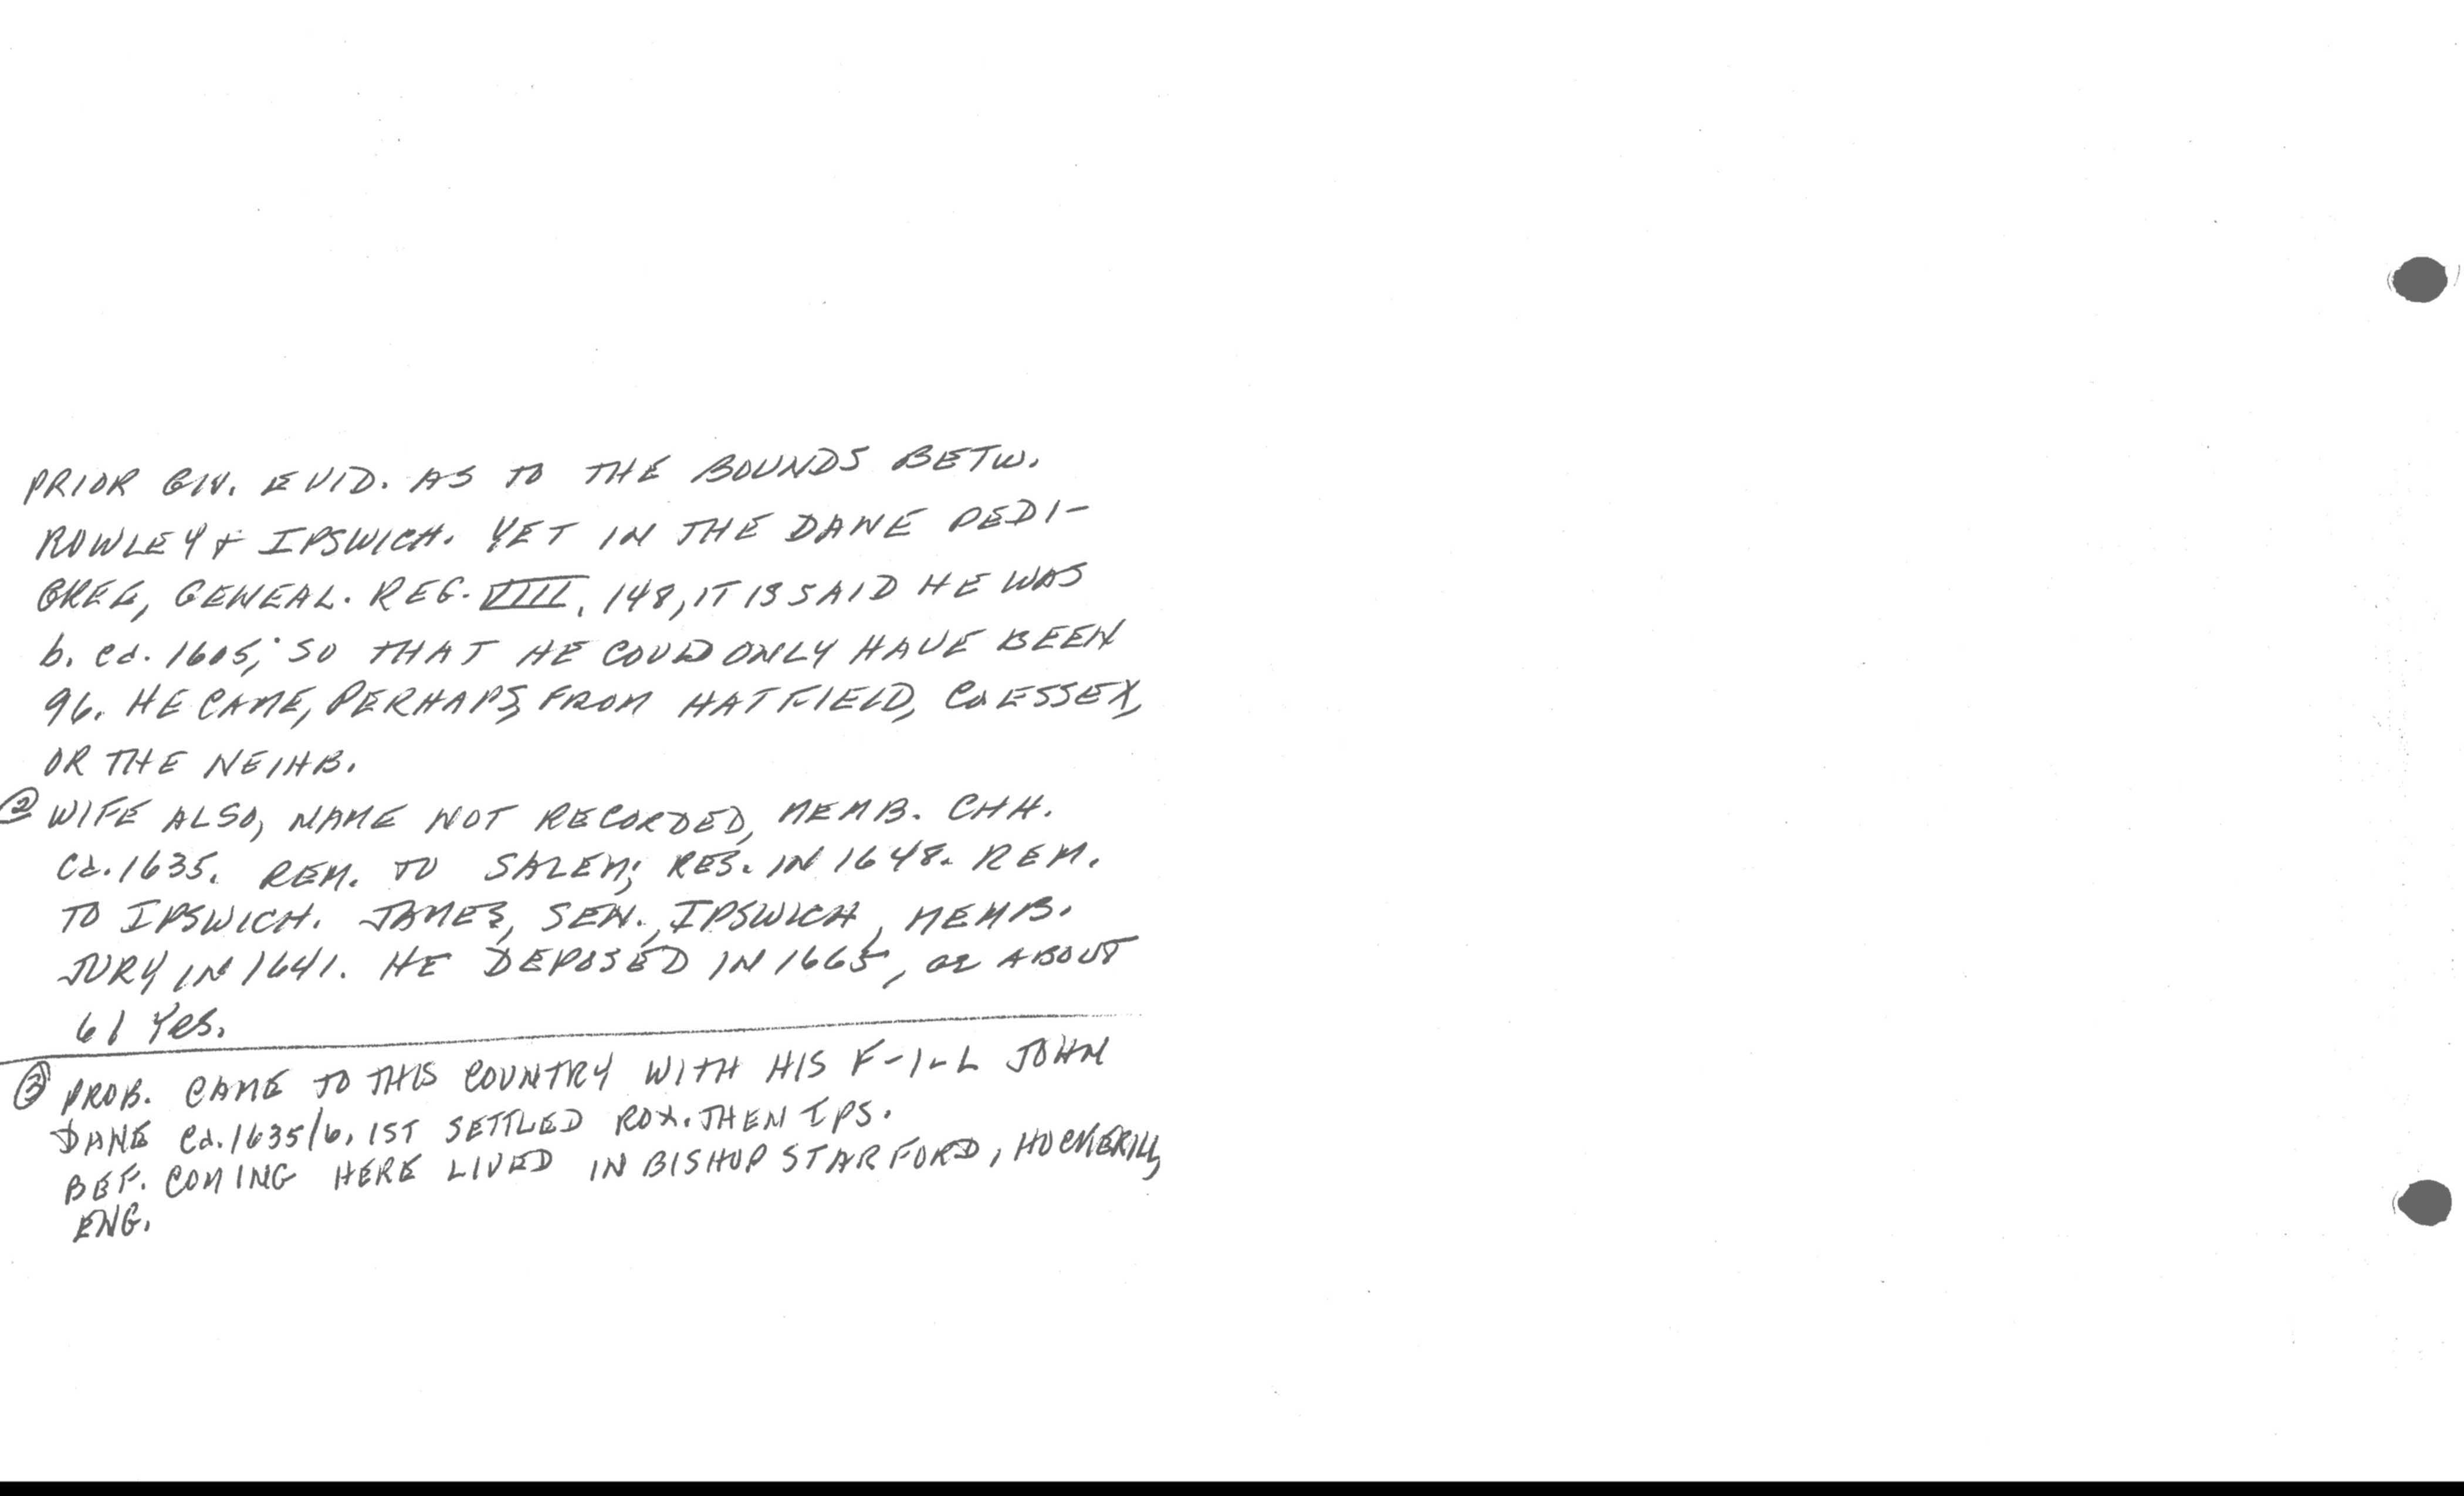 PRIOR GIV. EVID. AS TO THE BOUNDS BETW.
ROWLEY & IPSWICH. YET IN THE DANE PEDI-
GREE, GENEAL. REG. VIIII, 148, IT IS SAID HE WAS
b. ca. 1605; SO THAT HE COULD ONLY HAVE BEEN
96. HE CAME, PERHAPS, FROM HATFIELD, Co ESSEX,
OR THE NEIHB.
② WIFE ALSO, NAME NOT RECORDED, MEMB. CHH.
Ca. 1635. REM. TO SALEM; RES. IN 1648. REM.
TO IPSWICH. JAMES, SEN., IPSWICH, MEMB.
JURY IN 1641. HE DEPOSED IN 1665, ae ABOUT
61 YRS.
③ PROB. CAME TO THIS COUNTRY WITH HIS F-I-L JOHN
DANE Ca. 1635/6, 1ST SETTLED ROX. THEN IPS.
BEF. COMING HERE LIVED IN BISHOP STARFORD, HOCKERILL,
ENG.